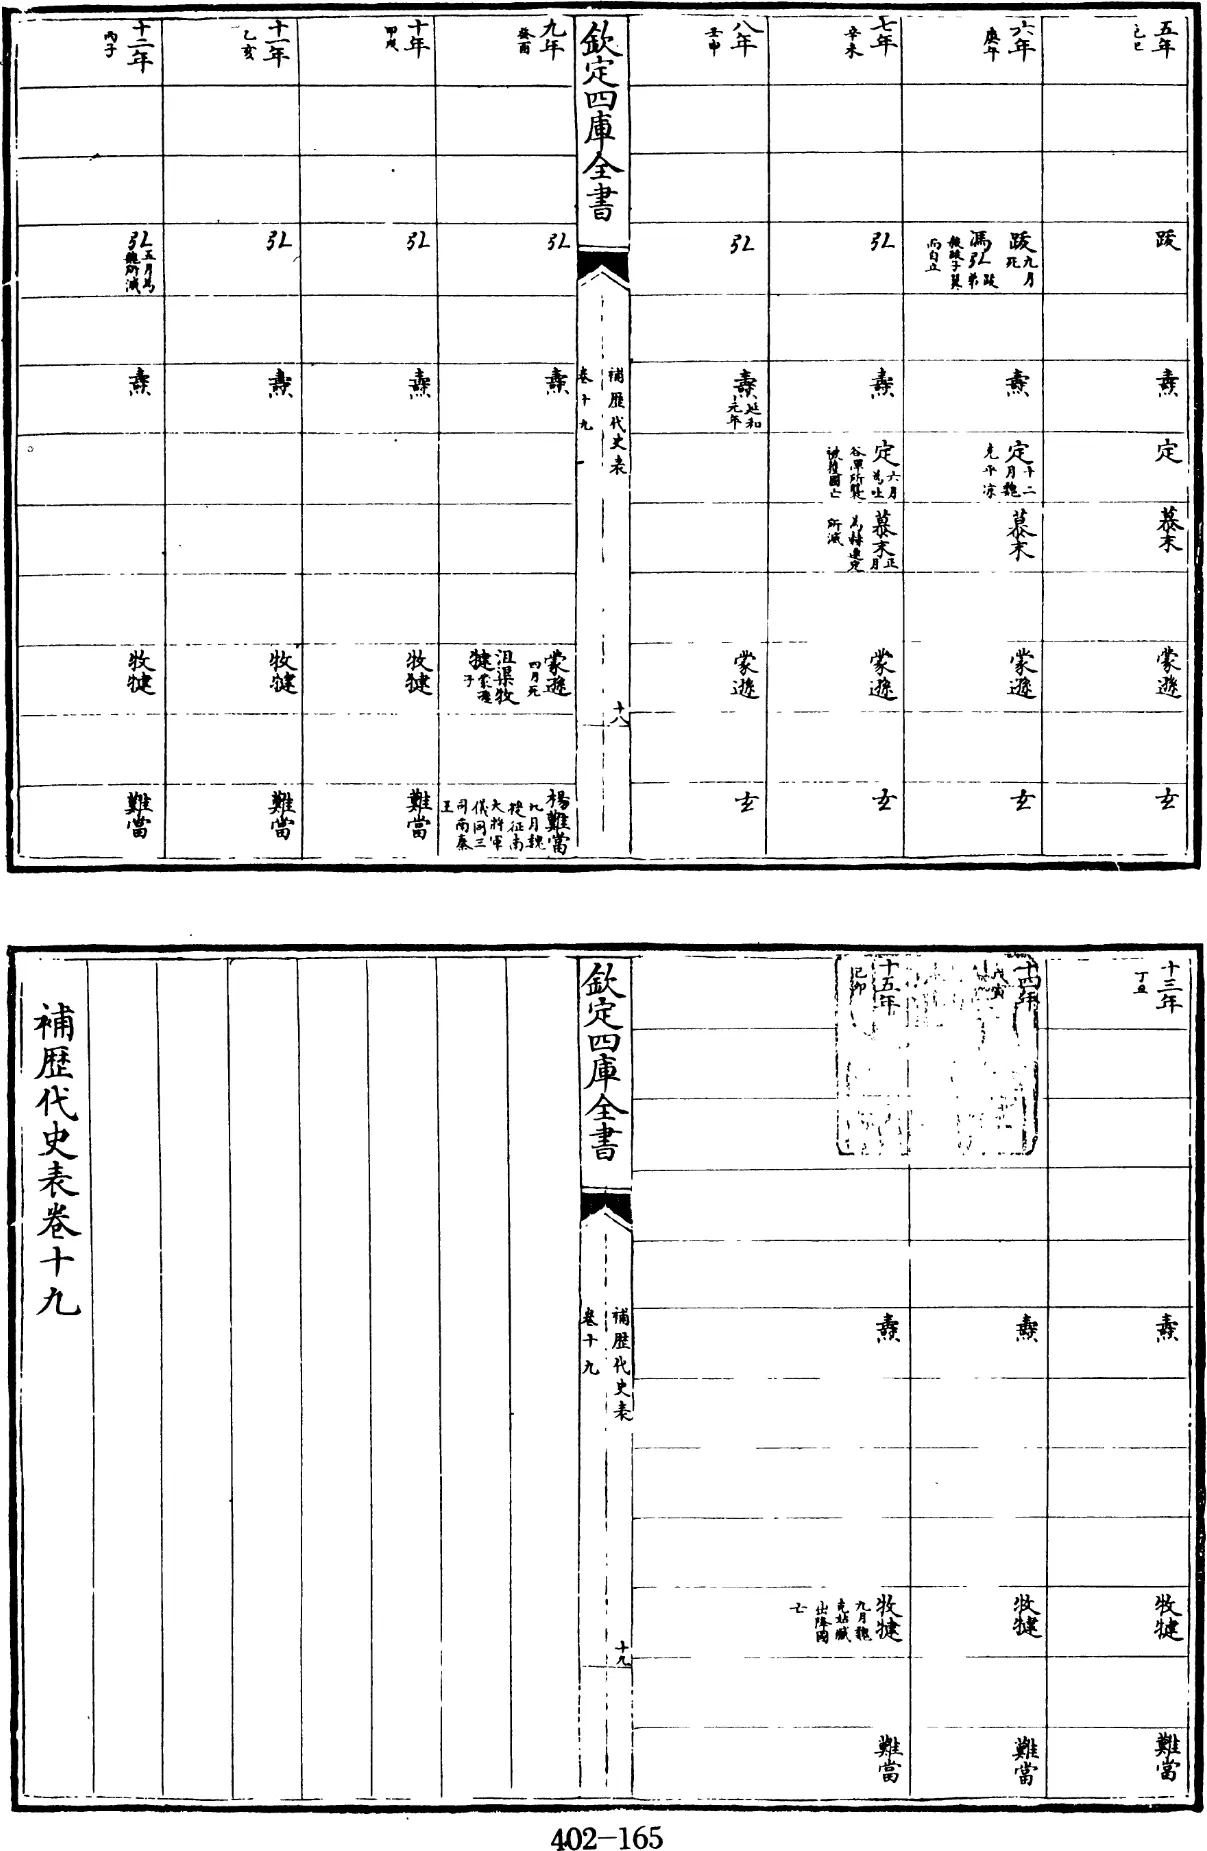 五年 己巳
跋
燾
定
慕末
蒙遜
玄
六年 庚午
跋 九月死
馮𢎞 跋弟殺跋子翼而自立
燾
定 十二月魏克平凉
慕末
蒙遜
玄
七年 辛未
𢎞
燾
定 六月為吐谷渾所襲被獲國亡
慕末 正月為赫連定所滅
蒙遜
玄
八年 壬申
𢎞
燾 延和元年
蒙遜
玄
欽定四庫全書
補歷代史表
卷十九
十八
九年 癸酉
𢎞
燾
蒙遜 四月死
沮渠牧犍 蒙遜子
楊難當 九月魏征南大將軍儀同三司南秦王
十年 甲戌
𢎞
燾
牧犍
難當
十一年 乙亥
𢎞
燾
牧犍
難當
十二年 丙子
𢎞 五月為魏所滅
燾
牧犍
難當
十三年 丁丑
燾
牧犍
難當
十四年 戊寅
燾
牧犍
難當
十五年 己卯
燾
牧犍 九月魏克姑臧出降國亡
難當
欽定四庫全書
補歷代史表
卷十九
十九
補歷代史表卷十九
402-165